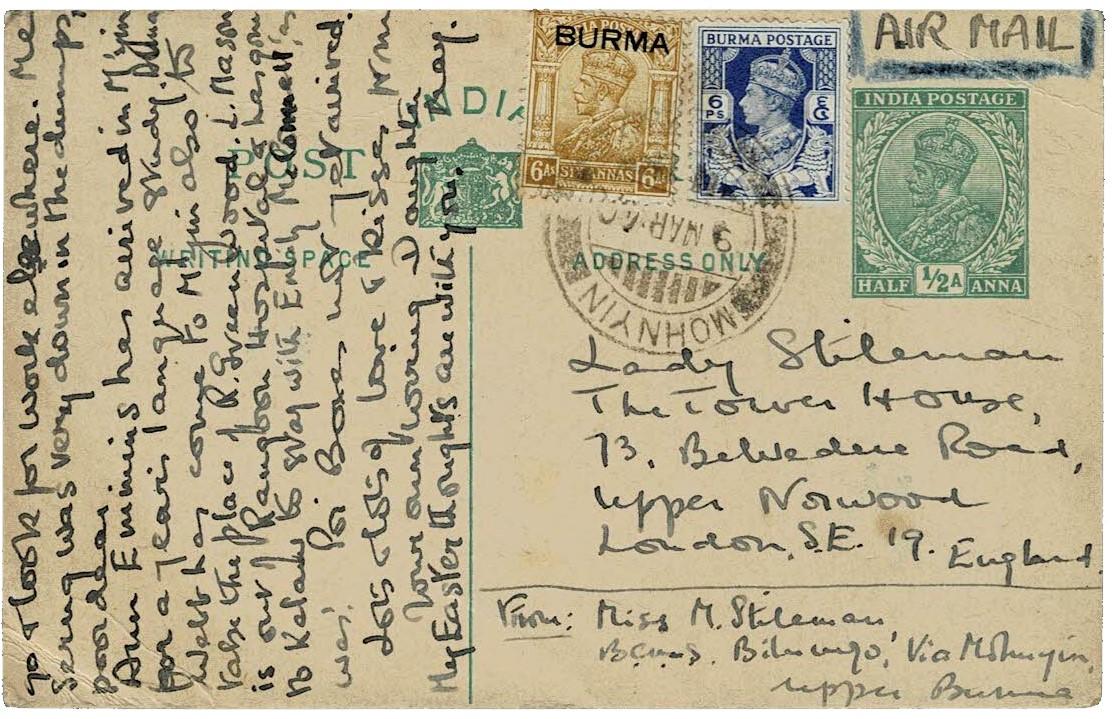 AIR MAIL
INDIA POSTAGE
BURMA
6As SIX ANNAS 6As
BURMA POSTAGE
6 PS
INDIA POSTAGE
HALF 1/2A ANNA
INDIA
POST
WRITING SPACE
ADDRESS ONLY
MOHNYIN
9 MAR. 40
Lady Stileman
The Tower House,
73, Belvedere Road,
Upper Norwood
London, S.E. 19. England.
From: Miss M. Stileman,
B.C.M.S. Via Mohnyin,
Upper Burma
go & look for work elsewhere. Me
Sering was very down in the dumps,
poor dear
Ann Emmins has arrived in M'yin
for a year's language study.
Webb hay come to M'yin also to
take the place of R. Greenwood. L. Mason
is our Rangoon Hospital & has gone
to Kalaw to stay with Emly
was. Poi Boas not yet arrived.
Lots & lots of love & kisses from
Your own loving Daughter
My Easter thoughts are with you. May.